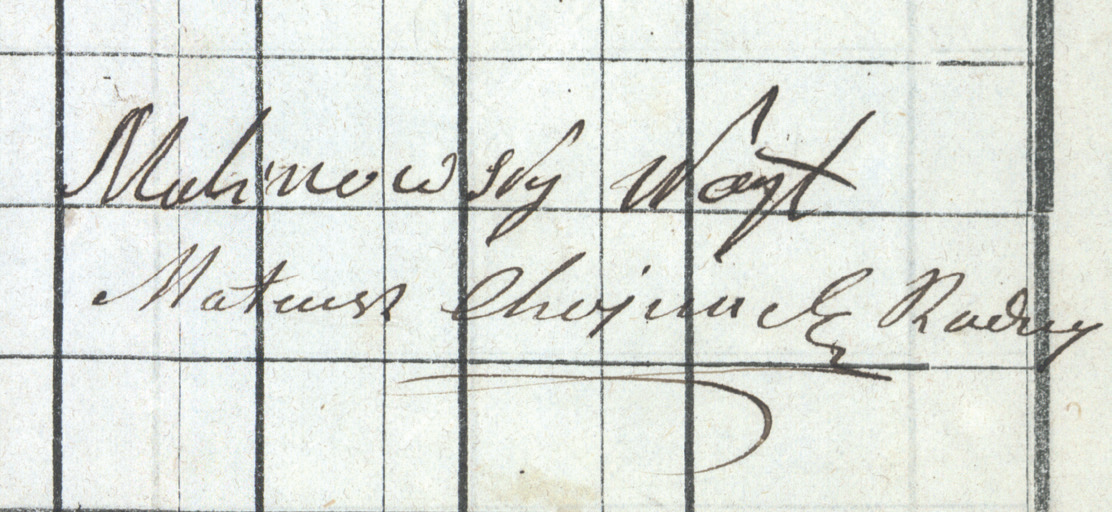 Malinowsky Woyt
Mateusz Choynacky Radny